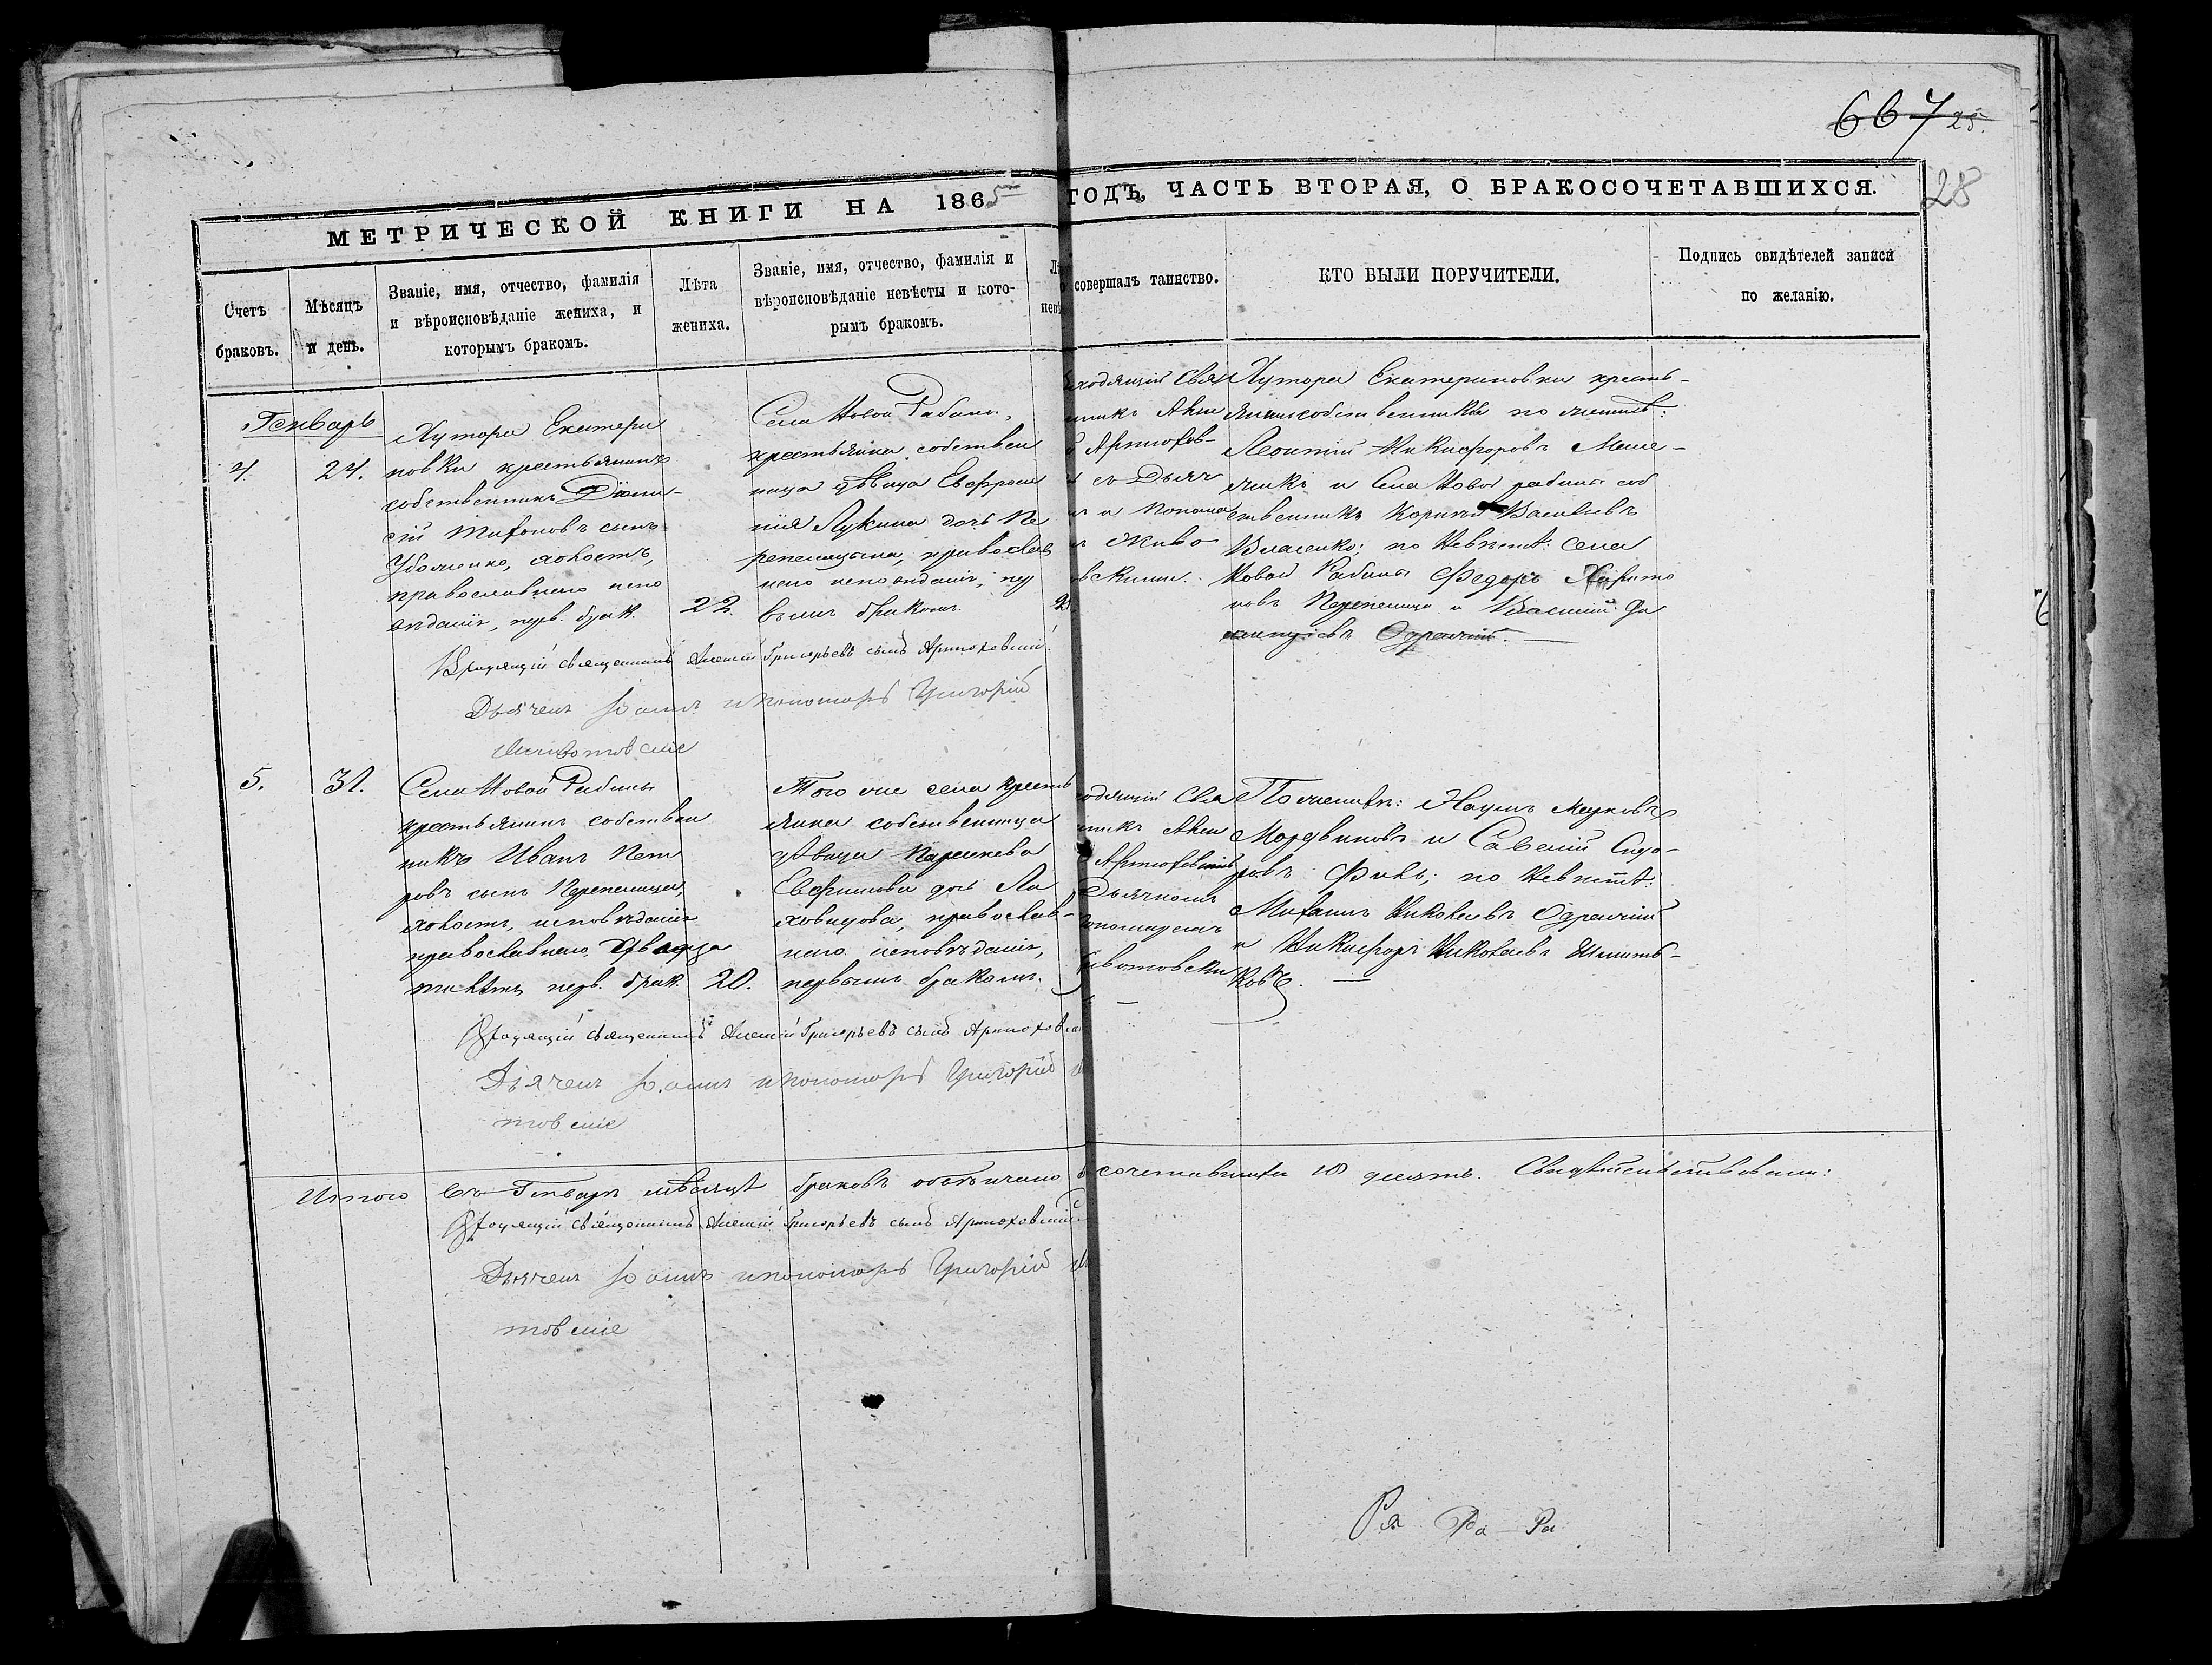 667 25.
28
МЕТРИЧЕСКОЙ КНИГИ НА 1865
ГОДЪ, ЧАСТЬ ВТОРАЯ, О БРАКОСОЧЕТАВШИХСЯ.
Счетъ
браковъ.
Мѣсяцъ
и день.
Званіе, имя, отчество, фамилія
и вѣроисповѣданіе жениха, и
которымъ бракомъ.
Лѣта
жениха.
Званіе, имя, отчество, фамилія и
вѣроисповѣданіе невѣсты и кото-
рымъ бракомъ.
совершалъ таинство.
КТО БЫЛИ ПОРУЧИТЕЛИ.
Подпись свидѣтелей записи
по желанію.
Генварь
4.
24.
Хутора Екатери
новки крестьянинъ
собственникъ Діони-
сій Тихоновъ сынъ
холостъ,
православнаго испо
вѣданія, перв. брак.
22.
Села Новой Рабины,
крестьянка собствен
ница дѣвица Евфроси
нія Лукина дочь Пе
репелицына, православ
наго исповѣданія, пер
вымъ бракомъ.
ходящій Свя
никъ Алек
Артюхов-
съ Дьяч
и Понома
Живо
вскими.
Хутора Екатериновки кресть-
яни собственники по женихѣ:
Леонтій Никифоровъ Меле-
и Села Новой рабины соб
ственникъ Корнилій Васильевъ
Власенко; по Невѣстѣ: села
Новой Рабины Федоръ Харито
новъ Перепелица и Василій Фи
липпіевъ Одрачій.
Входящій священникъ Алексій Григорьевъ сынъ Артюховскій.
Дьячекъ Іоаннъ и пономарь Григорій
Животовскіе
5.
31.
Села Новой Рабины
крестьянинъ собствен
никъ Иванъ Пет
ровъ сынъ Перепелица,
холостъ, исповѣданія
православнаго, Двадца
ти лѣтъ, перв. брак.
20.
Того же села кресть
янка собственница
дѣвица Параскева
Евфимова дочь Ля
ховцова, православ-
наго исповѣданія,
первымъ бракомъ.
одящій Свя
никъ Алек
Артюховскій
Дьячкомъ
пономаремъ
ивотовски
По женихѣ: Наумъ Марковъ
Мордвиновъ и Савелій Сидо-
ровъ Финь; по Невѣстѣ:
Михаилъ Николаевъ Одрачій
и Никифоръ Николаевъ
ковъ.
Входящій священникъ Алексій Григорьевъ сынъ Артюховск
Дьячекъ Іоаннъ и пономарь Григорій
товскіе
Итого въ Генварѣ мѣсяцѣ браковъ обвѣнчано 5 сочетавшихся 10 десять. Свидѣтельствовали:
Входящій священникъ Алексій Григорьевъ сынъ Артюховскій
Дьячекъ Іоаннъ и пономарь Григорій
товскіе
Ра Ра Ра